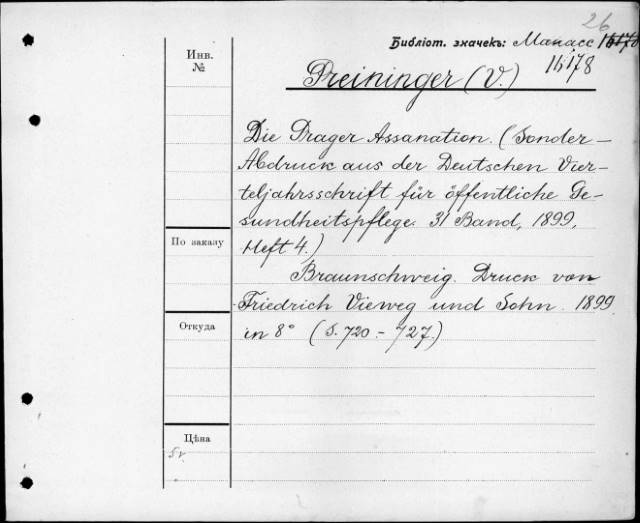 26
Библіот. значекъ: Манасс 16178
16178
Инв.
№
Preininger (V.)
Die Prager Assanation. (Sonder-
Abdruck aus der Deutschen Vier-
teljahrsschrift für öffentliche Ge-
sundheitspflege. 31 Band, 1899,
Heft 4.)
По заказу
Braunschweig. Druck von
Friedrich Vieweg und Sohn. 1899.
Откуда
in 8° (S. 720.-727.)
Цѣна